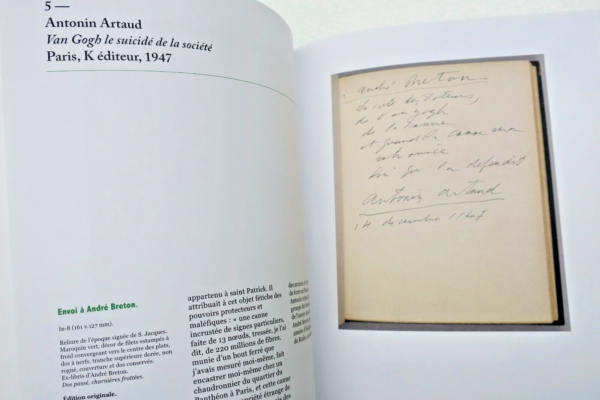 5 —
Antonin Artaud
Van Gogh le suicidé de la société
Paris, K éditeur, 1947
Envoi à André Breton.
In-8 (161 x 127 mm).
Reliure de l'époque signée de S. Jacques.
Maroquin vert, décor de filets estampés à
froid convergeant vers le centre des plats,
dos à nerfs, tranche supérieure dorée, non
rogné, couverture et dos conservés.
Ex-libris d'André Breton.
Dos passé, charnières frottées.
Édition originale.
appartenu à saint Patrick. Il
attribuait à cet objet fétiche des
pouvoirs protecteurs et
maléfiques : « une canne
incrustée de signes particuliers,
faite de 13 nœuds, tressée, je l'ai
dit, de 220 millions de fibres,
munie d'un bout ferré que
j'avais mesuré moi-même, fait
encastrer moi-même chez un
chaudronnier du quartier du
Panthéon à Paris, et cette canne
étrange de
à André Breton
de Van Gogh
de la canne
et
qui l'a défendit
Antonin Artaud
14 décembre 1947